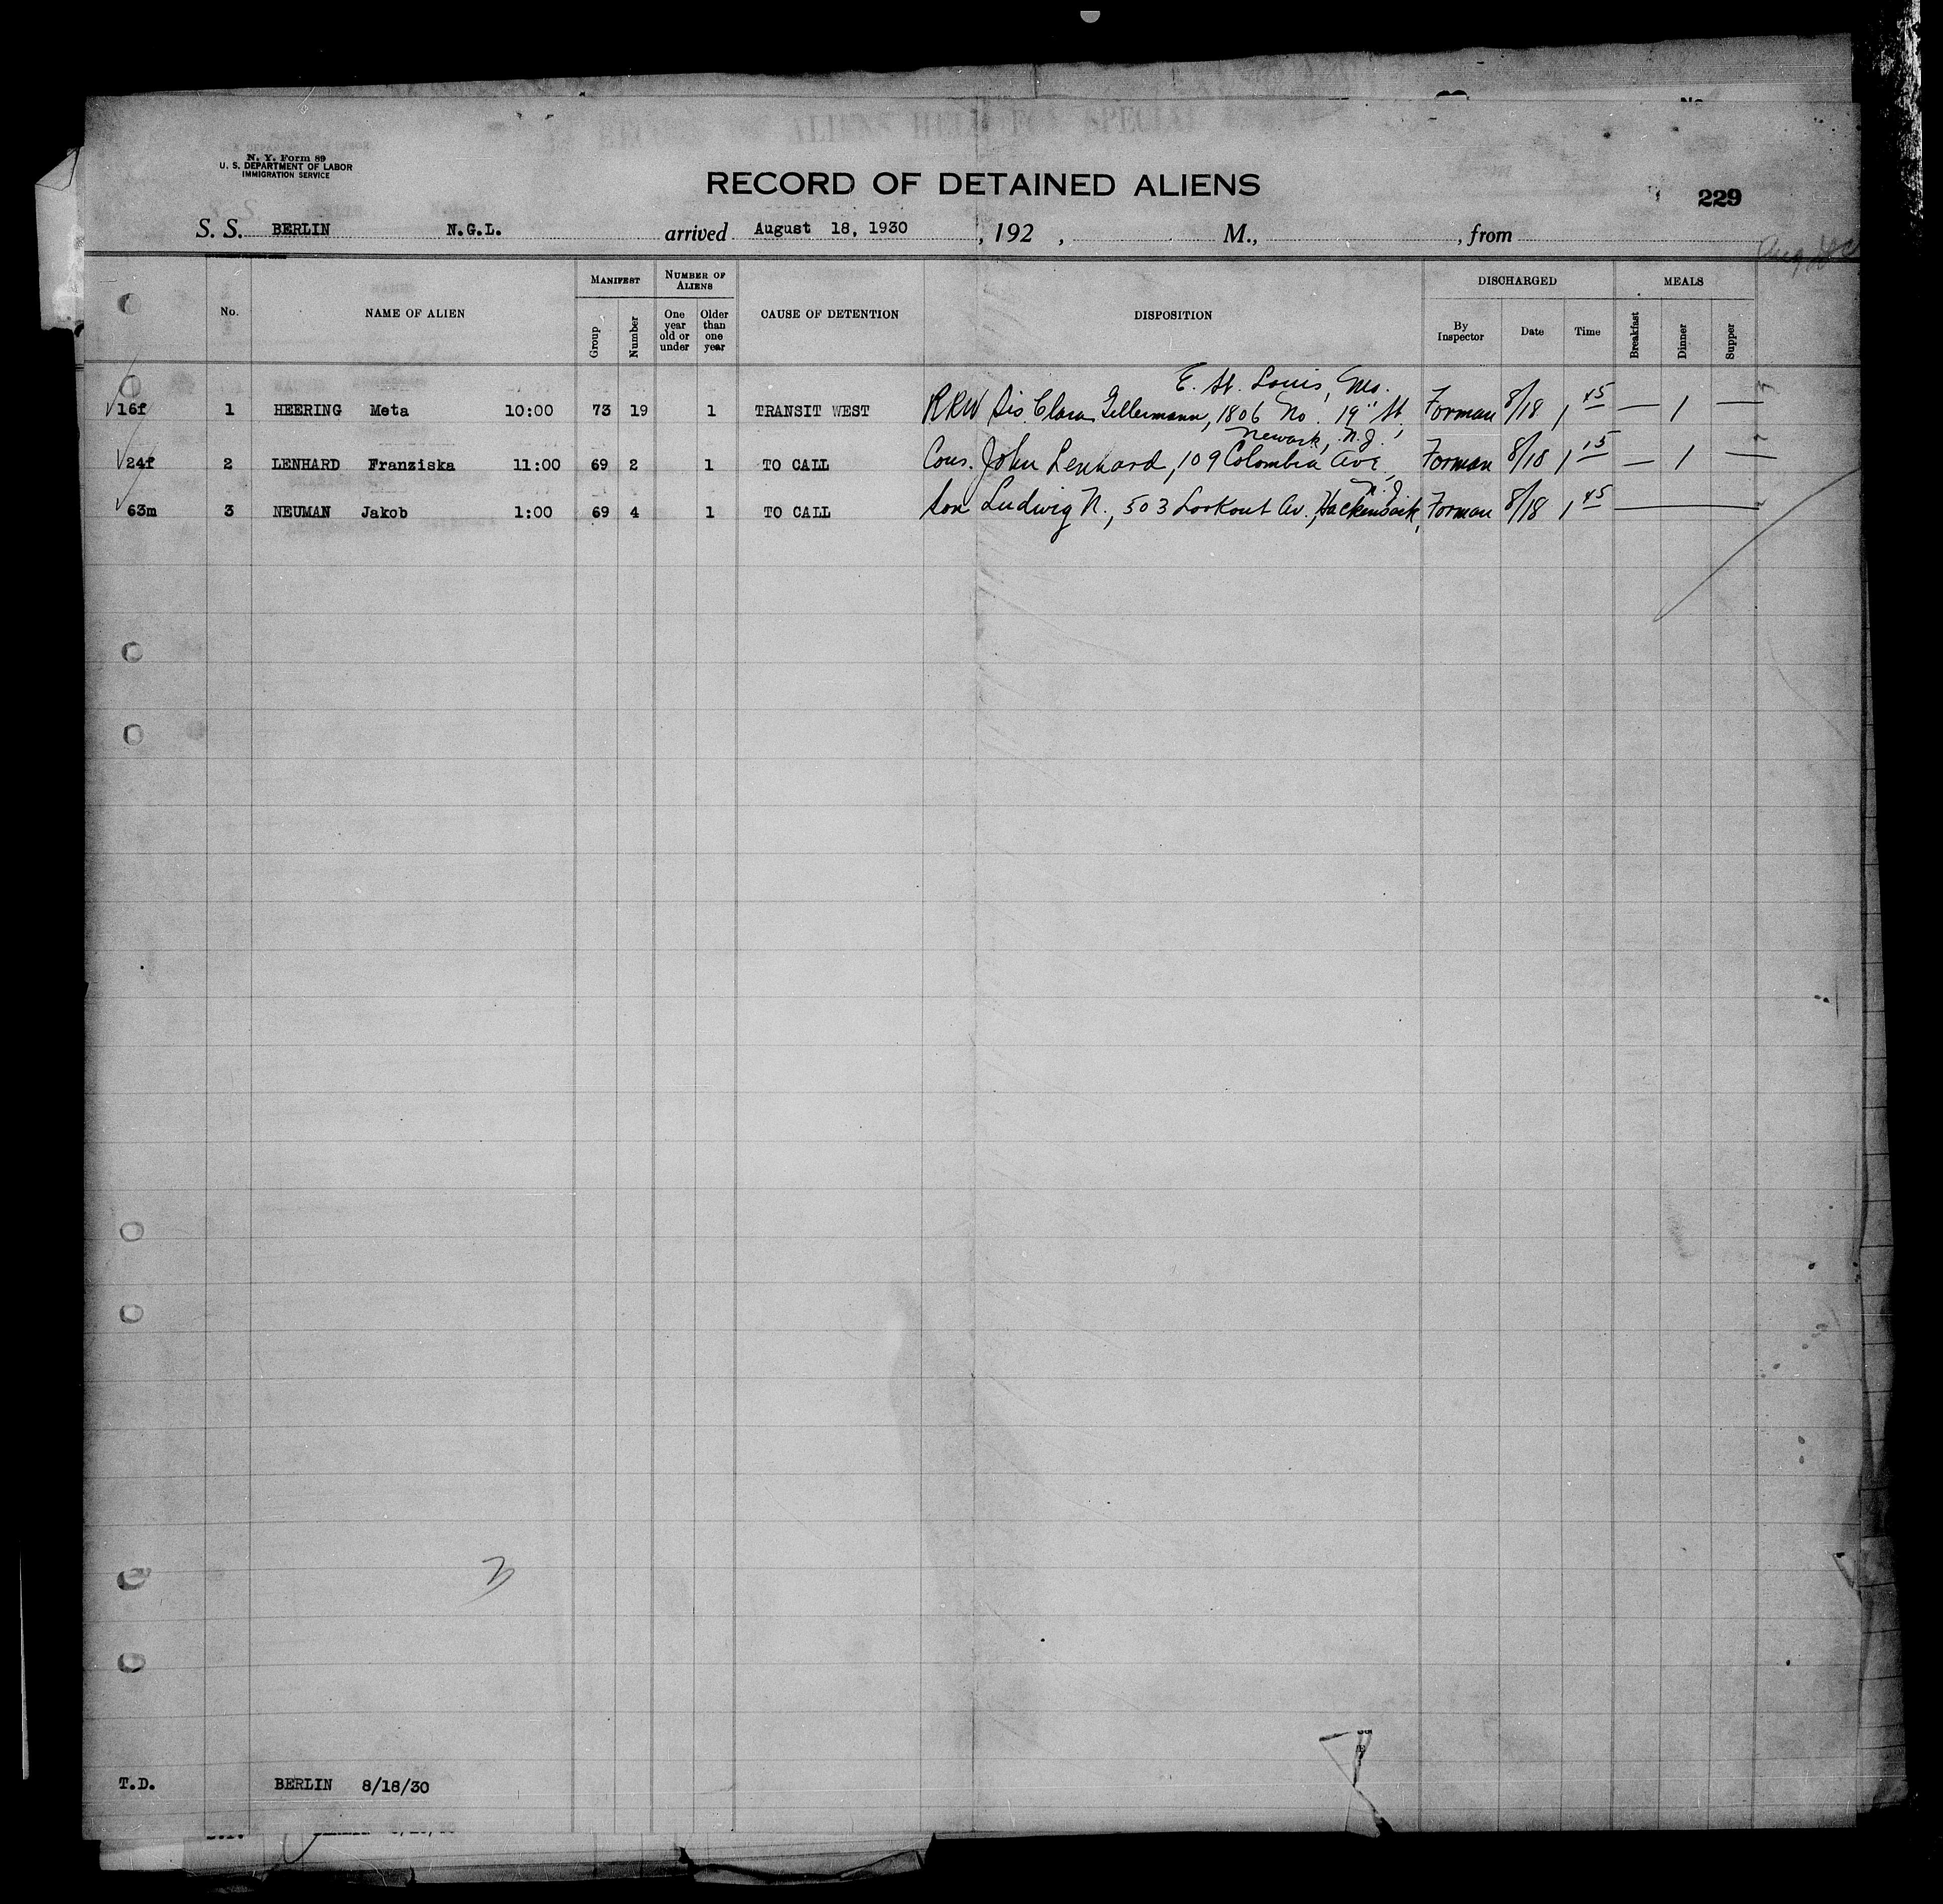 N. Y. Form 89
U. S. DEPARTMENT OF LABOR
IMMIGRATION SERVICE
RECORD OF DETAINED ALIENS
229
S. S. BERLIN N.G.L. arrived August 18, 1930 , 192 , M., , from
No. NAME OF ALIEN MANIFEST NUMBER OF ALIENS CAUSE OF DETENTION DISPOSITION DISCHARGED MEALS
Group Number One year old or under Older than one year By Inspector Date Time Breakfast Dinner Supper
E. St. Louis, Mo.
16f 1 HEERING Meta 10:00 73 19 1 TRANSIT WEST RRW Sis. Clara Gellermann, 1806 No. 19" St. Forman 8/18 1 45 — 1 —
Newark, N.J.
24f 2 LENHARD Franziska 11:00 69 2 1 TO CALL Cous. John Lenhard, 109 Colombia Ave, Forman 8/18 1 15 — 1 —
N.J.
63m 3 NEUMAN Jakob 1:00 69 4 1 TO CALL Son Ludwig N., 503 Lookout Av., Hackensack, Forman 8/18 1 45 —
3
T.D. BERLIN 8/18/30